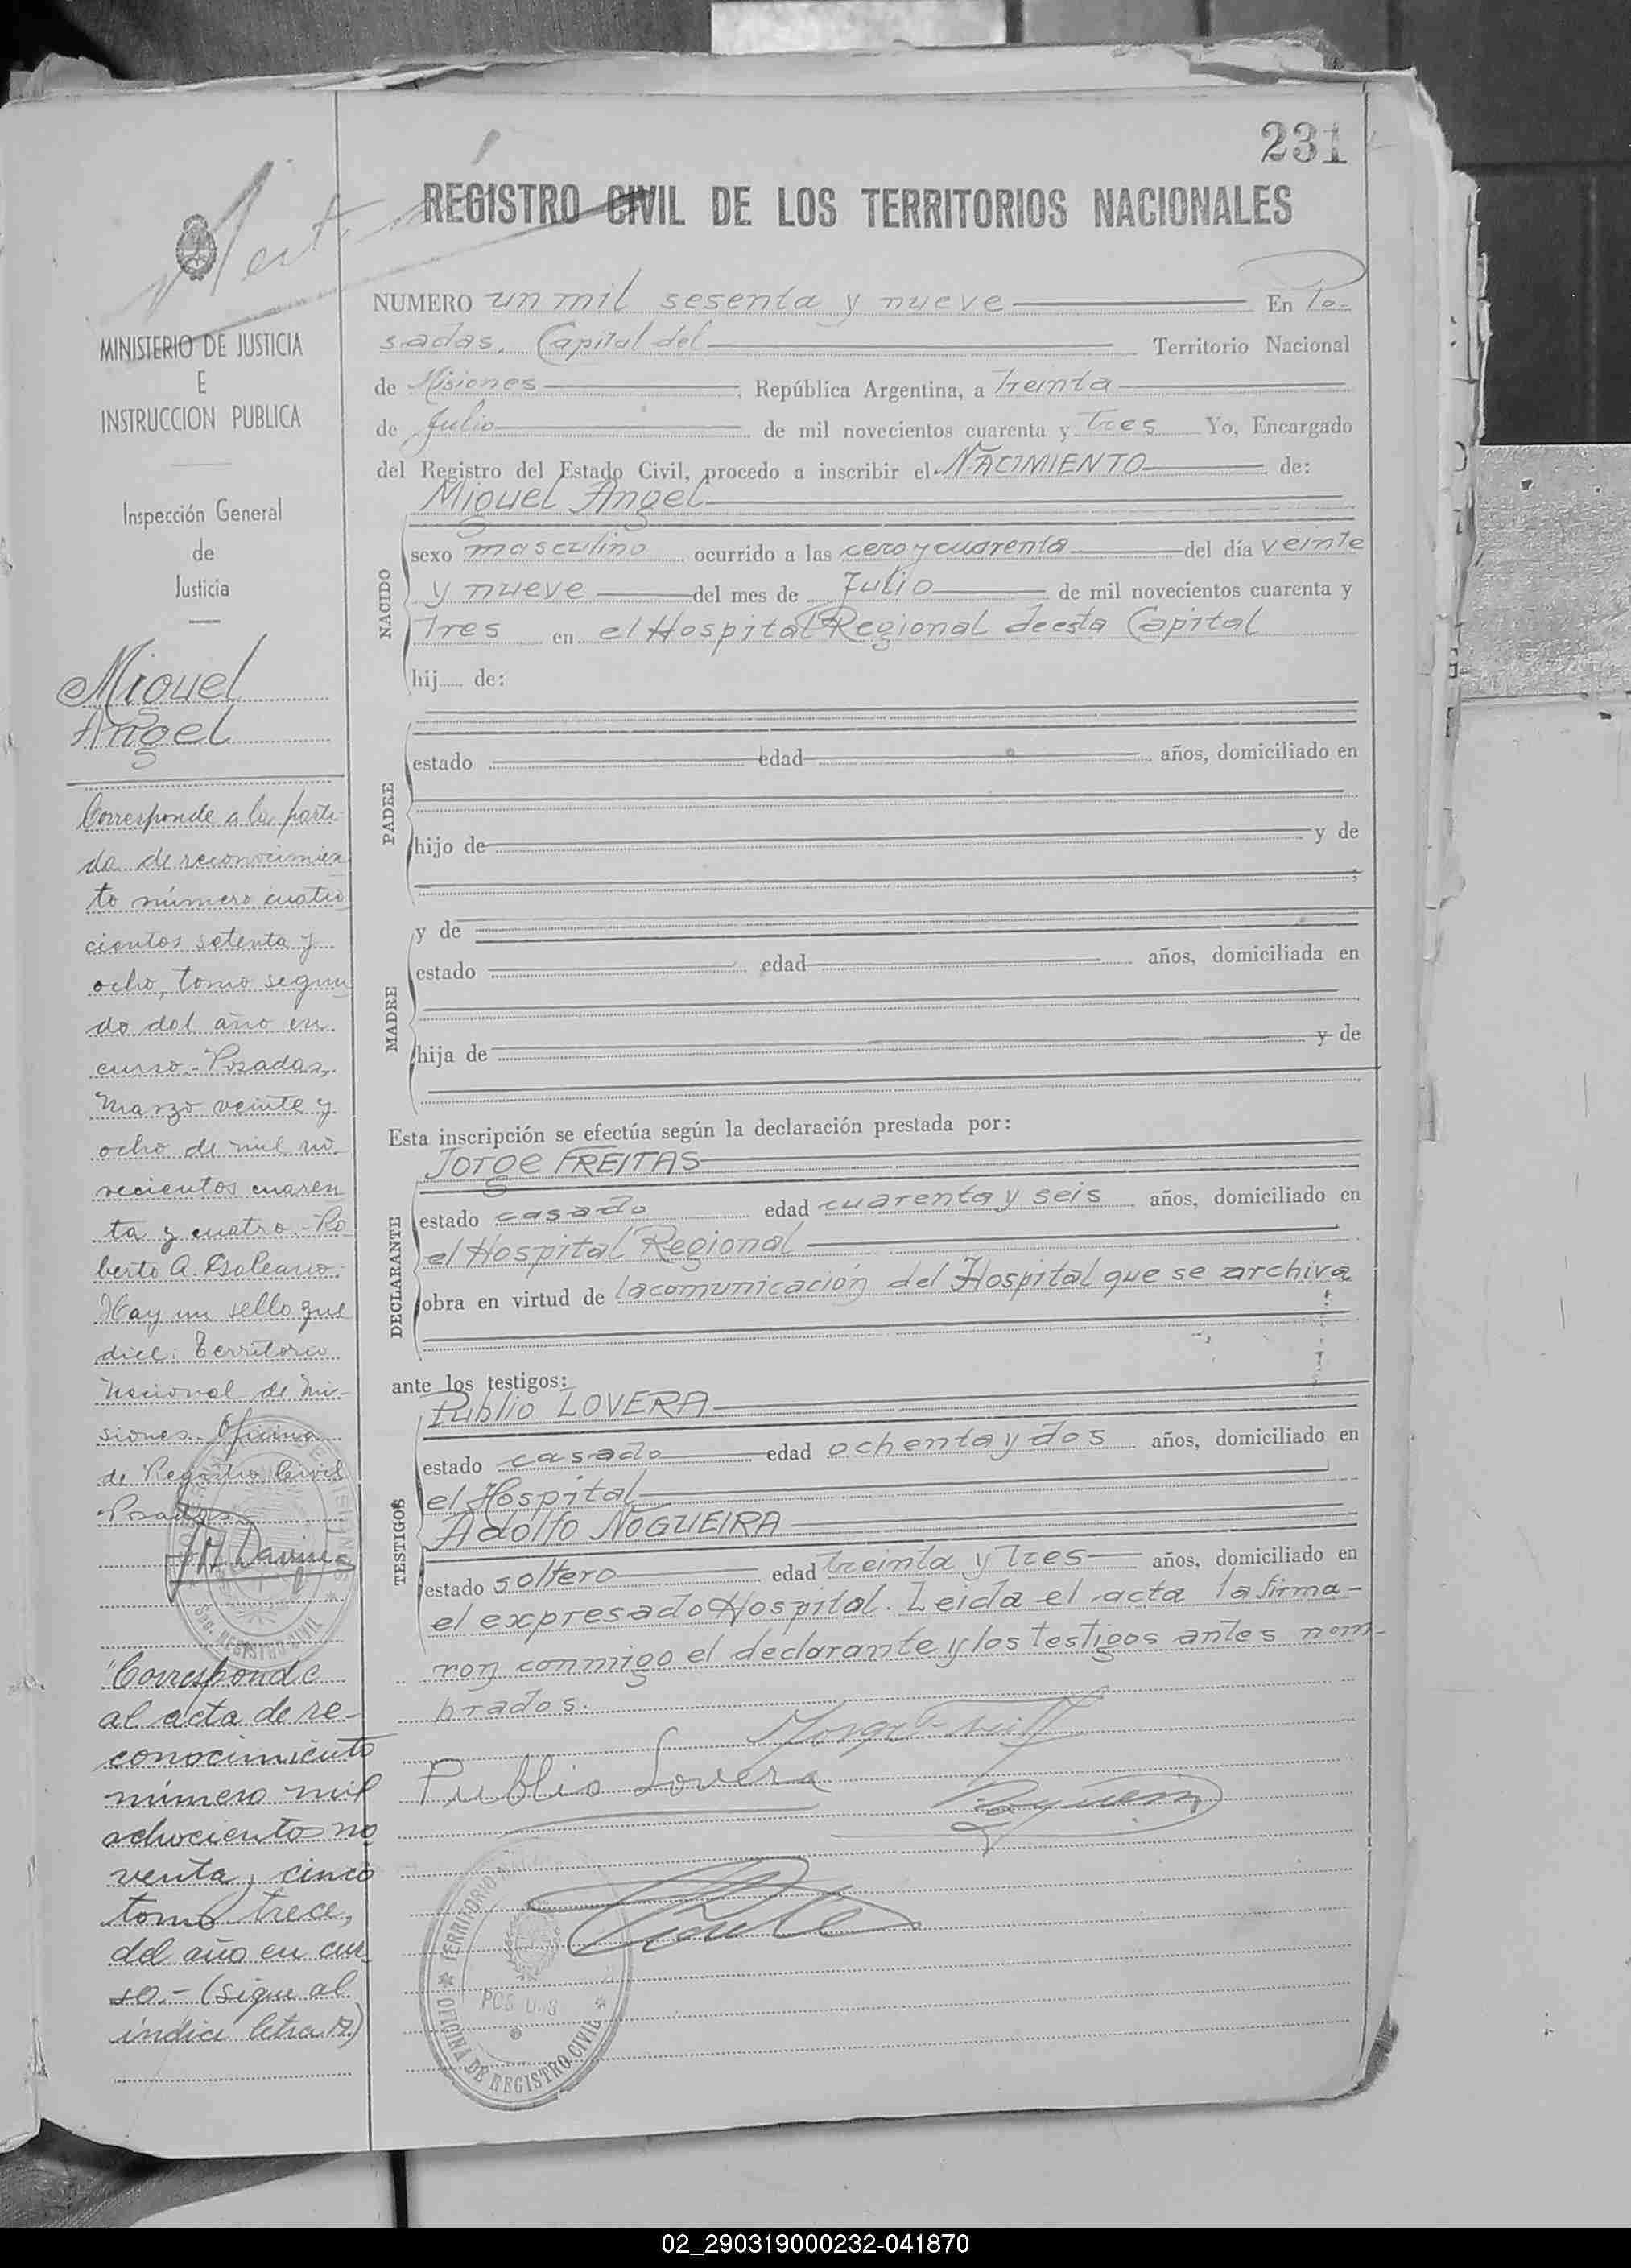 231
REGISTRO CIVIL DE LOS TERRITORIOS NACIONALES
MINISTERIO DE JUSTICIA
E
INSTRUCCION PUBLICA
Inspección General
de
Justicia
Miguel
Angel
Corresponde a la parti-
da de reconocimien
to número cuatro
cientos setenta y
ocho, tomo segun
do del año en
curso.- Posadas,
Marzo veinte y
ocho de mil no
vecientos cuaren
ta y cuatro.- Ro
berto A. Galeano.
Hay un sello que
dice: Territorio
Nacional de Mi-
siones. Oficina
de Registro Civil
Posadas
Corresponde
al acta de re-
conocimiento
número mil
ochocientos no
venta y cinco
tomo trece,
del año en cur
so.- (Sigue al
indice letra M.)
NUMERO un mil sesenta y nueve En Po-
sadas, Capital del Territorio Nacional
de Misiones, República Argentina, a treinta
de Julio de mil novecientos cuarenta y tres Yo, Encargado
del Registro del Estado Civil, procedo a inscribir el NACIMIENTO de:
NACIDO
Miguel Angel
sexo masculino ocurrido a las cero y cuarenta del día veinte
y nueve del mes de Julio de mil novecientos cuarenta y
tres en el Hospital Regional de esta Capital
hij de:
PADRE
estado edad años, domiciliado en
hijo de y de
;
MADRE
y de
estado edad años, domiciliada en
hija de y de
Esta inscripción se efectúa según la declaración prestada por:
DECLARANTE
Jorge FREITAS
estado casado edad cuarenta y seis años, domiciliado en
el Hospital Regional
obra en virtud de la comunicación del Hospital que se archiva
ante los testigos:
TESTIGOS
Publio LOVERA
estado casado edad ochenta y dos años, domiciliado en
el Hospital
Adolfo NOGUEIRA
estado soltero edad treinta y tres años, domiciliado en
el expresado Hospital. Leida el acta la firma-
ron conmigo el declarante y los testigos antes nom-
brados.
Publio Lovera
TERRITORIO
POSADAS
OFICINA DE REGISTRO CIVIL
02_290319000232-041870